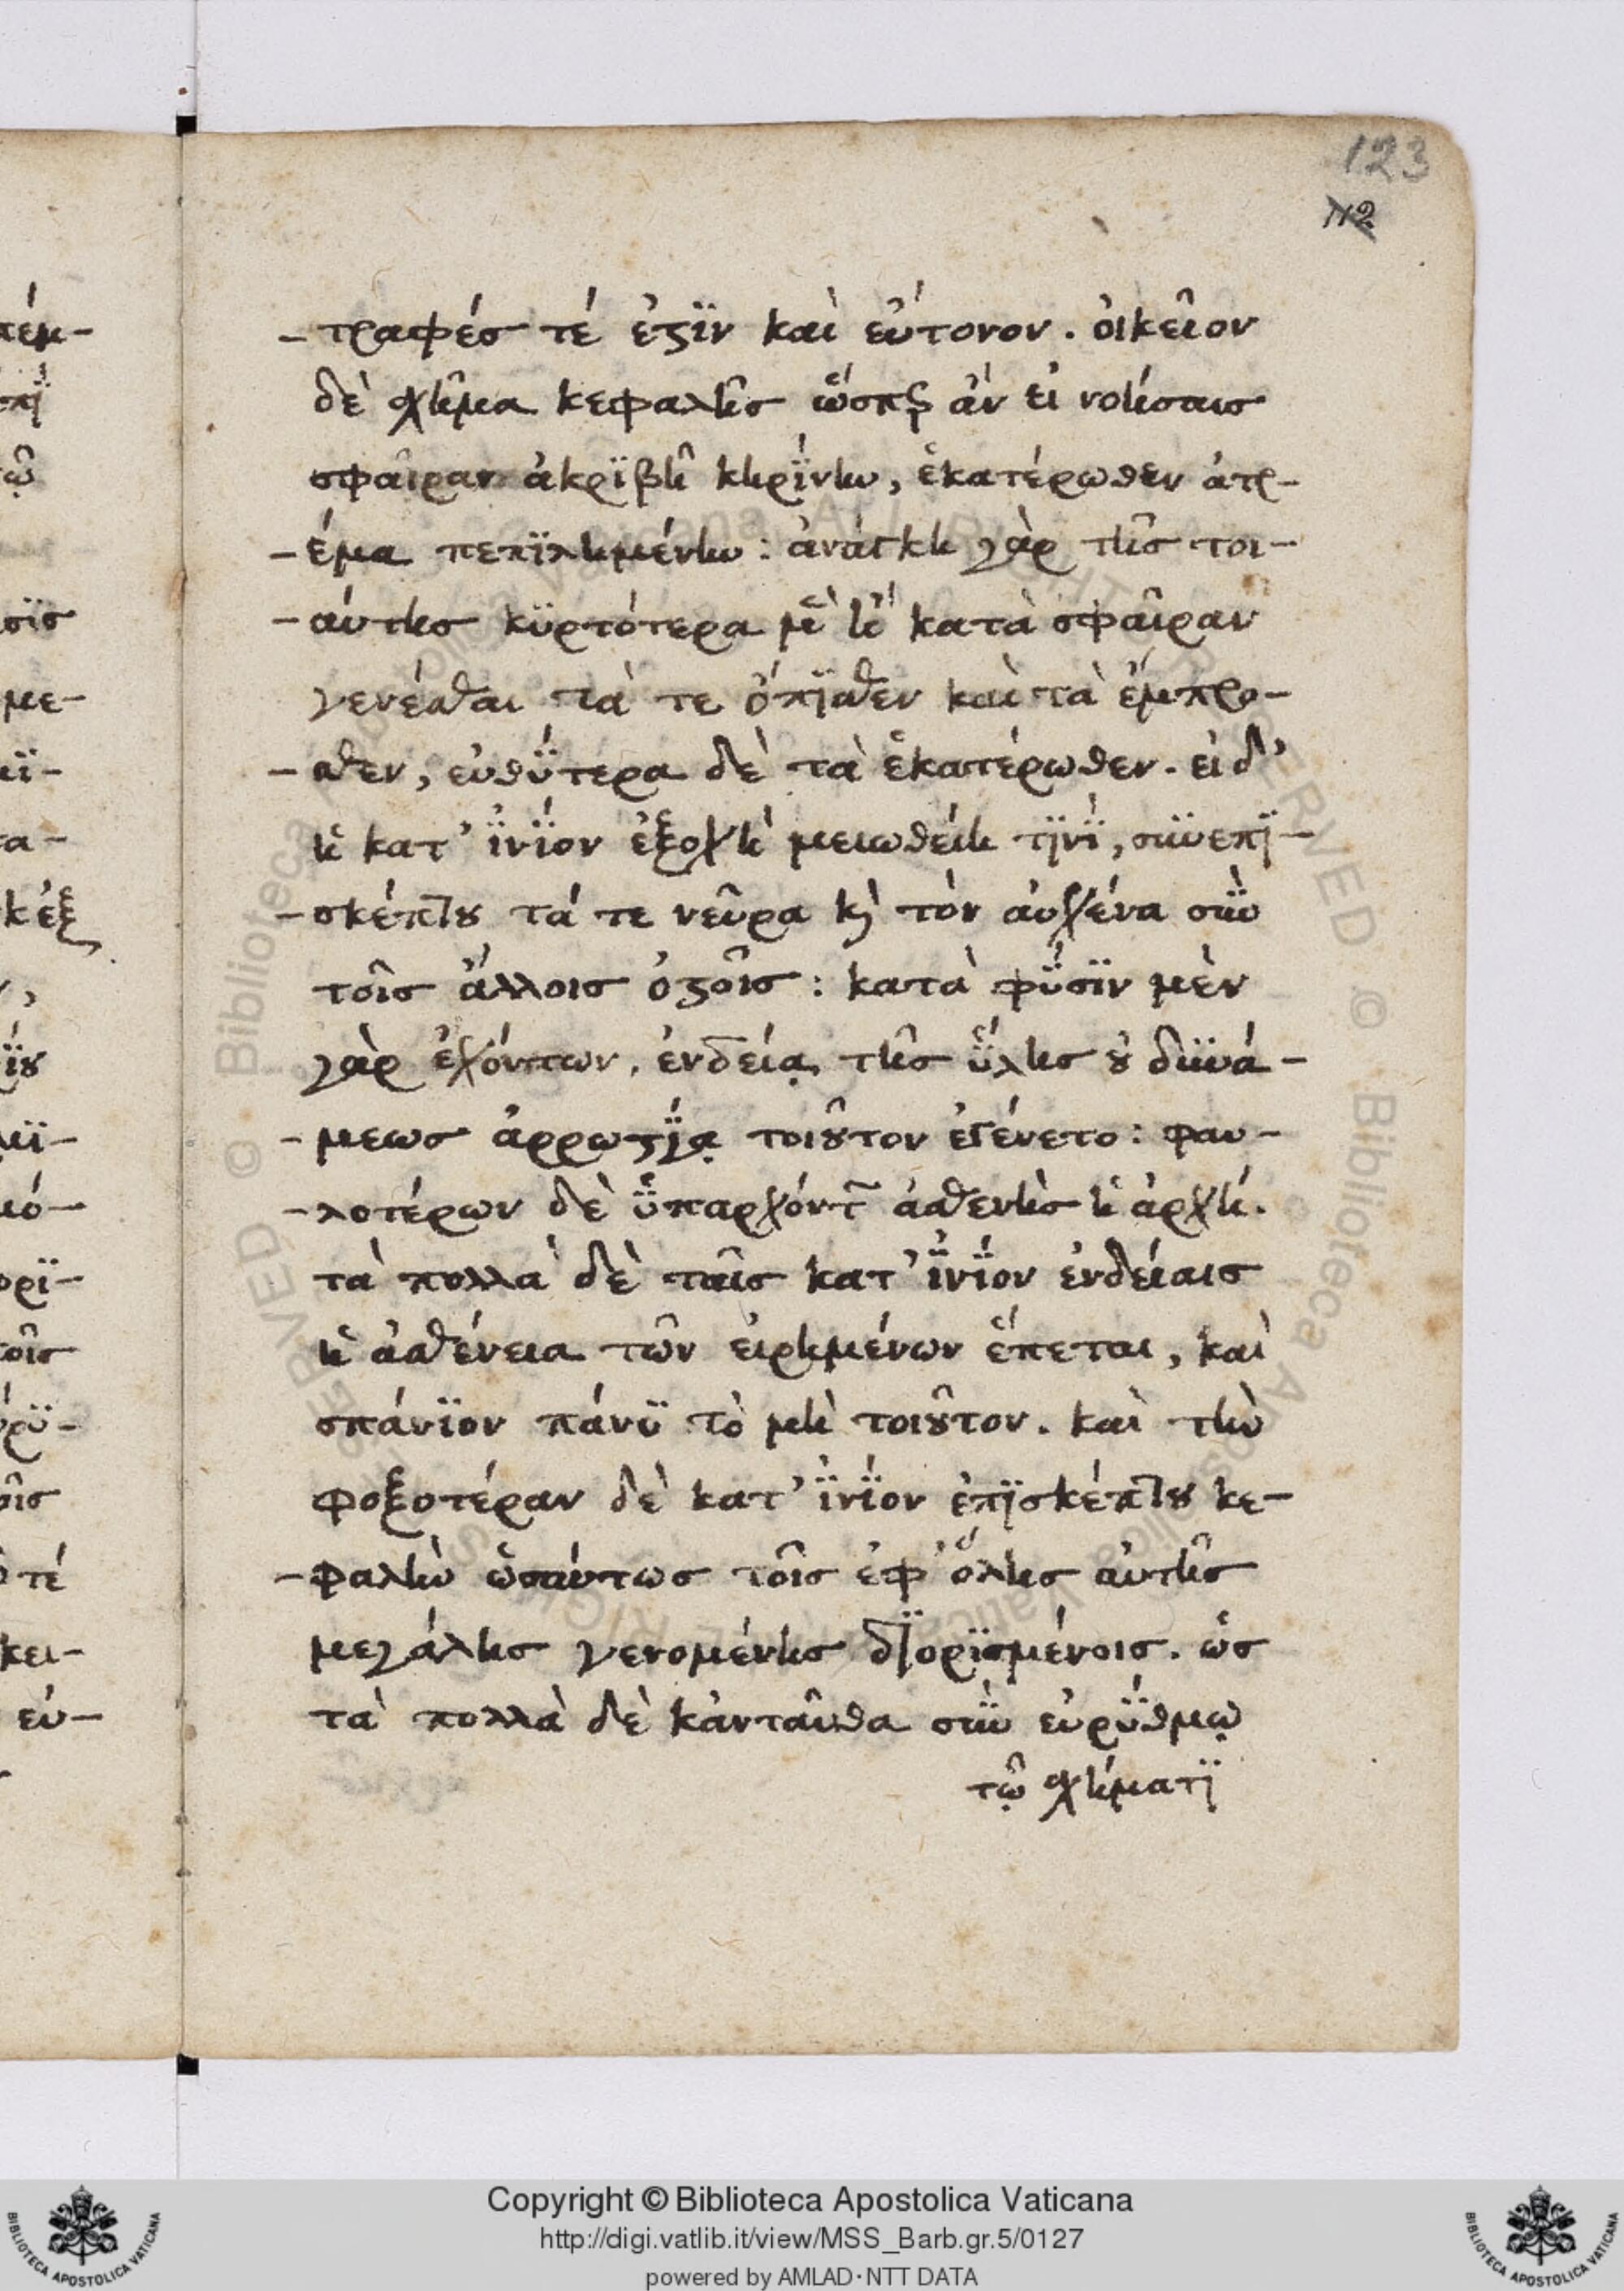 123
112
-τραφές τέ ἐστϊν καὶ εὔτονον. οἰκεῖον
δὲ σχῆμα κεφαλῆς ὥσπερ ἂν εἰ νοήσαις
σφαῖραν ἀκρϊβῆ κηρΐνην, ἑκατέρωθεν ἀτρ-
-έμα πεπϊλημένην: ἀνάγκη γὰρ τῆς τοι-
-αύτης κϋρτότερα μὲν ἢ κατὰ σφαῖραν
γενέσθαι τά τε ὄπϊσθεν καὶ τὰ ἔμπρο-
-σθεν, εὐθΰτερα δὲ τὰ ἑκατέρωθεν. εἰ δ’
ἡ κατ’ ἰνΐον ἐξοχὴ μειωθείη τϊνϊ, συνεπϊ-
-σκέπτου τά τε νεῦρα καὶ τὸν αὐχένα σὺν
τοῖς ἄλλοις ὀστοῖς: κατὰ φΰσϊν μὲν
γὰρ ἐχόντων, ἐνδείᾳ τῆς ὕλης οὐ δυνά-
-μεως ἀρρωστΐᾳ τοιοῦτον ἐγένετο: φαυ-
-λοτέρων δὲ ὑπαρχόντων ἀσθενὴς ἡ ἀρχή.
τὰ πολλὰ δὲ ταῖς κατ’ ἰνΐον ἐνδείαις
ἡ ἀσθένεια τῶν εἰρημένων ἕπεται, καὶ
σπάνϊον πάνϋ τὸ μὴ τοιοῦτον. καὶ τὴν
φοξοτέραν δὲ κατ’ ἰνΐον ἐπϊσκέπτου κε-
-φαλὴν ὡσαύτως τοῖς ἐφ’ ὅλης αὐτῆς
μεγάλης γενομένης δϊορϊσμένοις. ὡς
τὰ πολλὰ δὲ κἀνταῦθα σὺν εὐρΰθμῳ
τῷ σχήματϊ
Copyright © Biblioteca Apostolica Vaticana
http://digi.vatlib.it/view/MSS_Barb.gr.5/0127
powered by AMLAD·NTT DATA